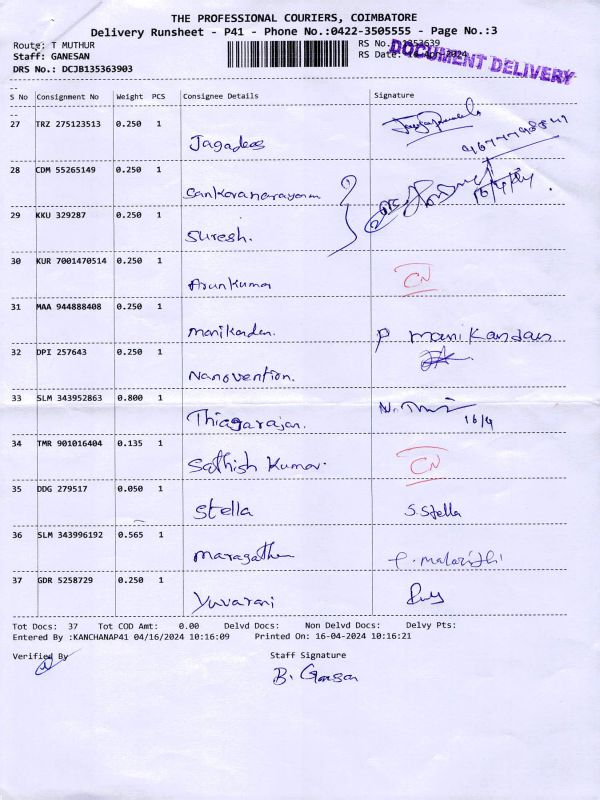 THE PROFESSIONAL COURIERS, COIMBATORE
Delivery Runsheet - P41 - Phone No.:0422-3505555 - Page No.:3
Route: T MUTHUR
RS No.
Staff: GANESAN
RS Date:
DOCUMENT DELIVERY
DRS No.: DCJB135363903
S No Consignment No Weight PCS Consignee Details Signature
27 TRZ 275123513 0.250 1
Jagadees
28 CDM 55265149 0.250 1
Sankaranarayanan
29 KKU 329287 0.250 1
Suresh.
30 KUR 7001470514 0.250 1
Arunkumar CN
31 MAA 944888408 0.250 1
manikandan P manikandan
32 DPI 257643 0.250 1
Nanovention.
33 SLM 343952863 0.800 1
Thiagarajan.
16/4
34 TMR 901016404 0.135 1
Sathish Kumar. CN
35 DDG 279517 0.050 1
Stella S.Stella
36 SLM 343996192 0.565 1
37 GDR 5258729 0.250 1
Yuvarani
Tot Docs: 37 Tot COD Amt: 0.00 Delvd Docs: Non Delvd Docs: Delvy Pts:
Entered By :KANCHANAP41 04/16/2024 10:16:09 Printed On: 16-04-2024 10:16:21
Verified By Staff Signature